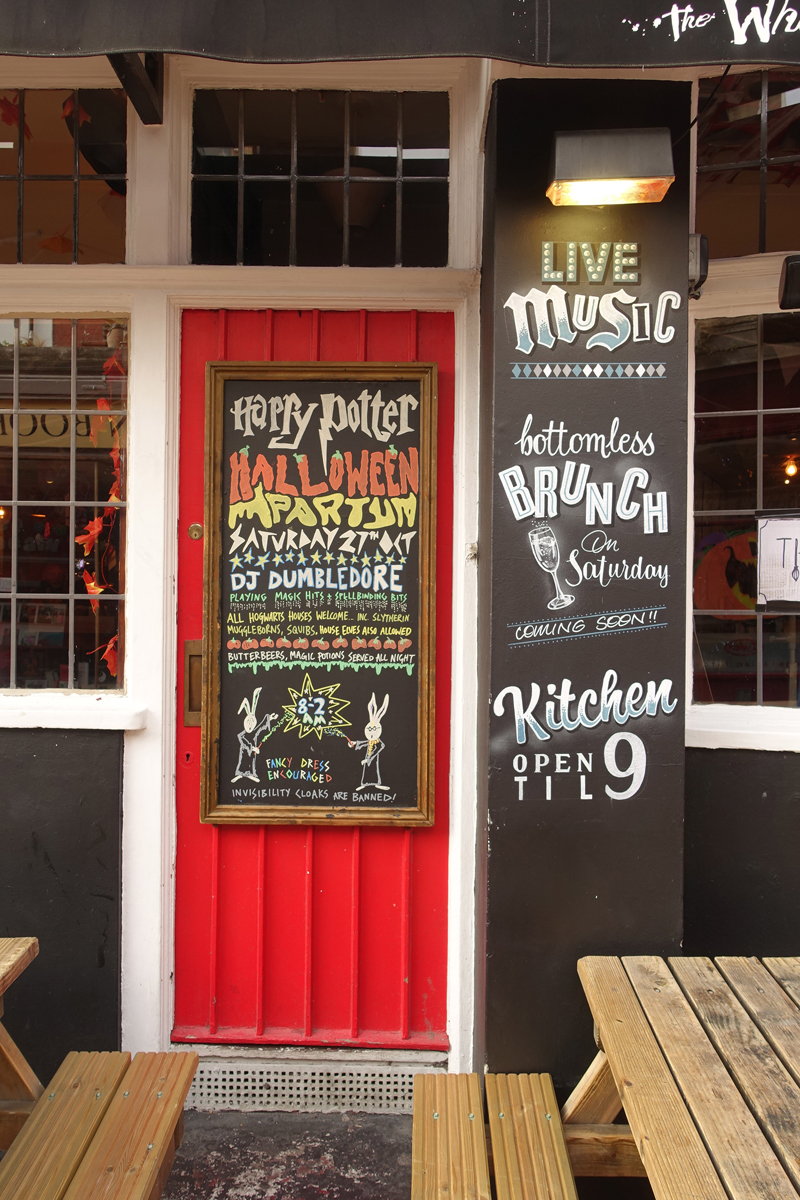 the Wh
LIVE
MUSIC
bottomless
BRUNCH
On
Saturday
COMING SOON!!
Kitchen
OPEN
TIL 9
Harry Potter
HALLOWEEN
MPARTYM
SATURDAY 27TH OCT
DJ DUMBLEDORE
PLAYING MAGIC HITS + SPELLBINDING BITS
ALL HOGWARTS HOUSES WELCOME.. INC SLYTHERIN
MUGGLEBORNS, SQUIBS, HOUSE ELVES ALSO ALLOWED
BUTTERBEERS, MAGIC POTIONS SERVED ALL NIGHT
8-2
AM
FANCY DRESS
ENCOURAGED
INVISIBILITY CLOAKS ARE BANNED!
BOO
TI